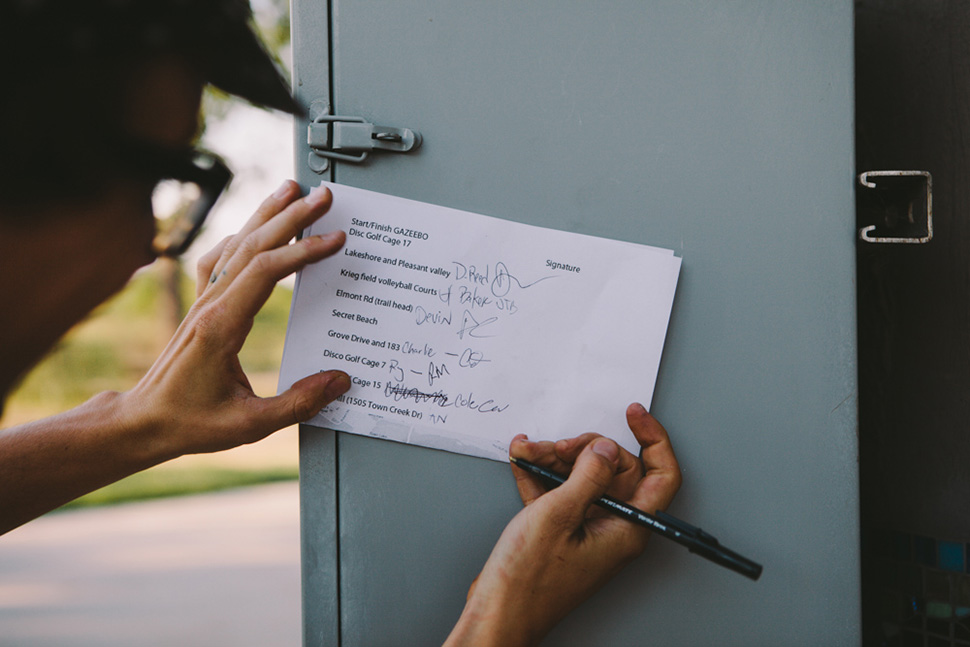 Start/Finish GAZEEBO
Disc Golf Cage 17
Signature
Lakeshore and Pleasant valley D.Reed
Krieg field volleyball Courts Baker
Elmont Rd (trail head) Devin
Secret Beach
Grove Drive and 183 Charlie
Disco Golf Cage 7 Ry - RM
Cage 15 Cole
(1505 Town Creek Dr)